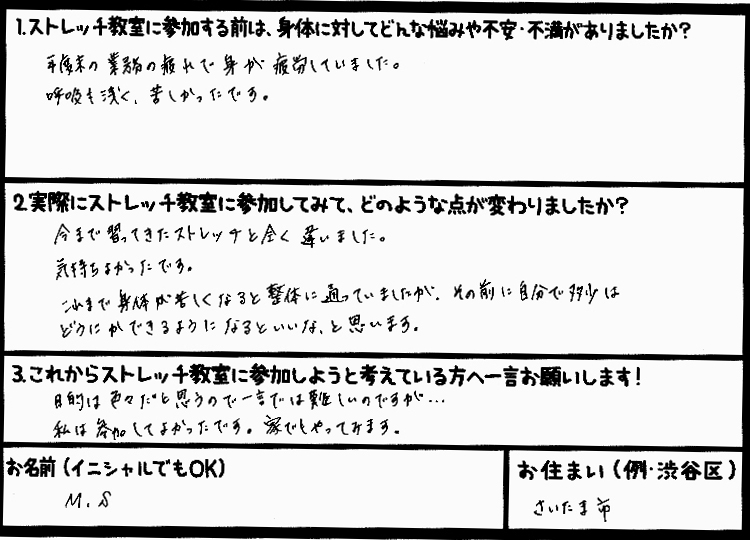 1.ストレッチ教室に参加する前は、身体に対してどんな悩みや不安・不満がありましたか？
年度末の業務の疲れで身が疲労していました。
呼吸も浅く、苦しかったです。
2.実際にストレッチ教室に参加してみて、どのような点が変わりましたか？
今まで習ってきたストレッチと全く違いました。
気持ちよかったです。
これまで身体が苦しくなると整体に通っていましたが、その前に自分で多少は
どうにかできるようになるといいな、と思います。
3.これからストレッチ教室に参加しようと考えている方へ一言お願いします！
目的は色々だと思うので一言では難しいのですが…
私は参加してよかったです。家でもやってみます。
お名前（イニシャルでもOK）
M.S
お住まい（例・渋谷区）
さいたま市